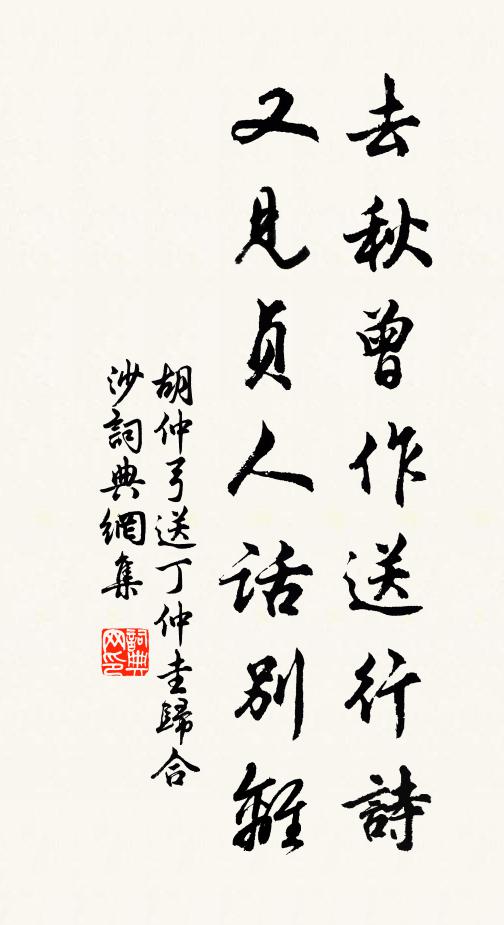 去秋曾作送行詩
又見貞人話別離
胡仲弓送丁仲圭歸合
沙詞典網集
詞典网印